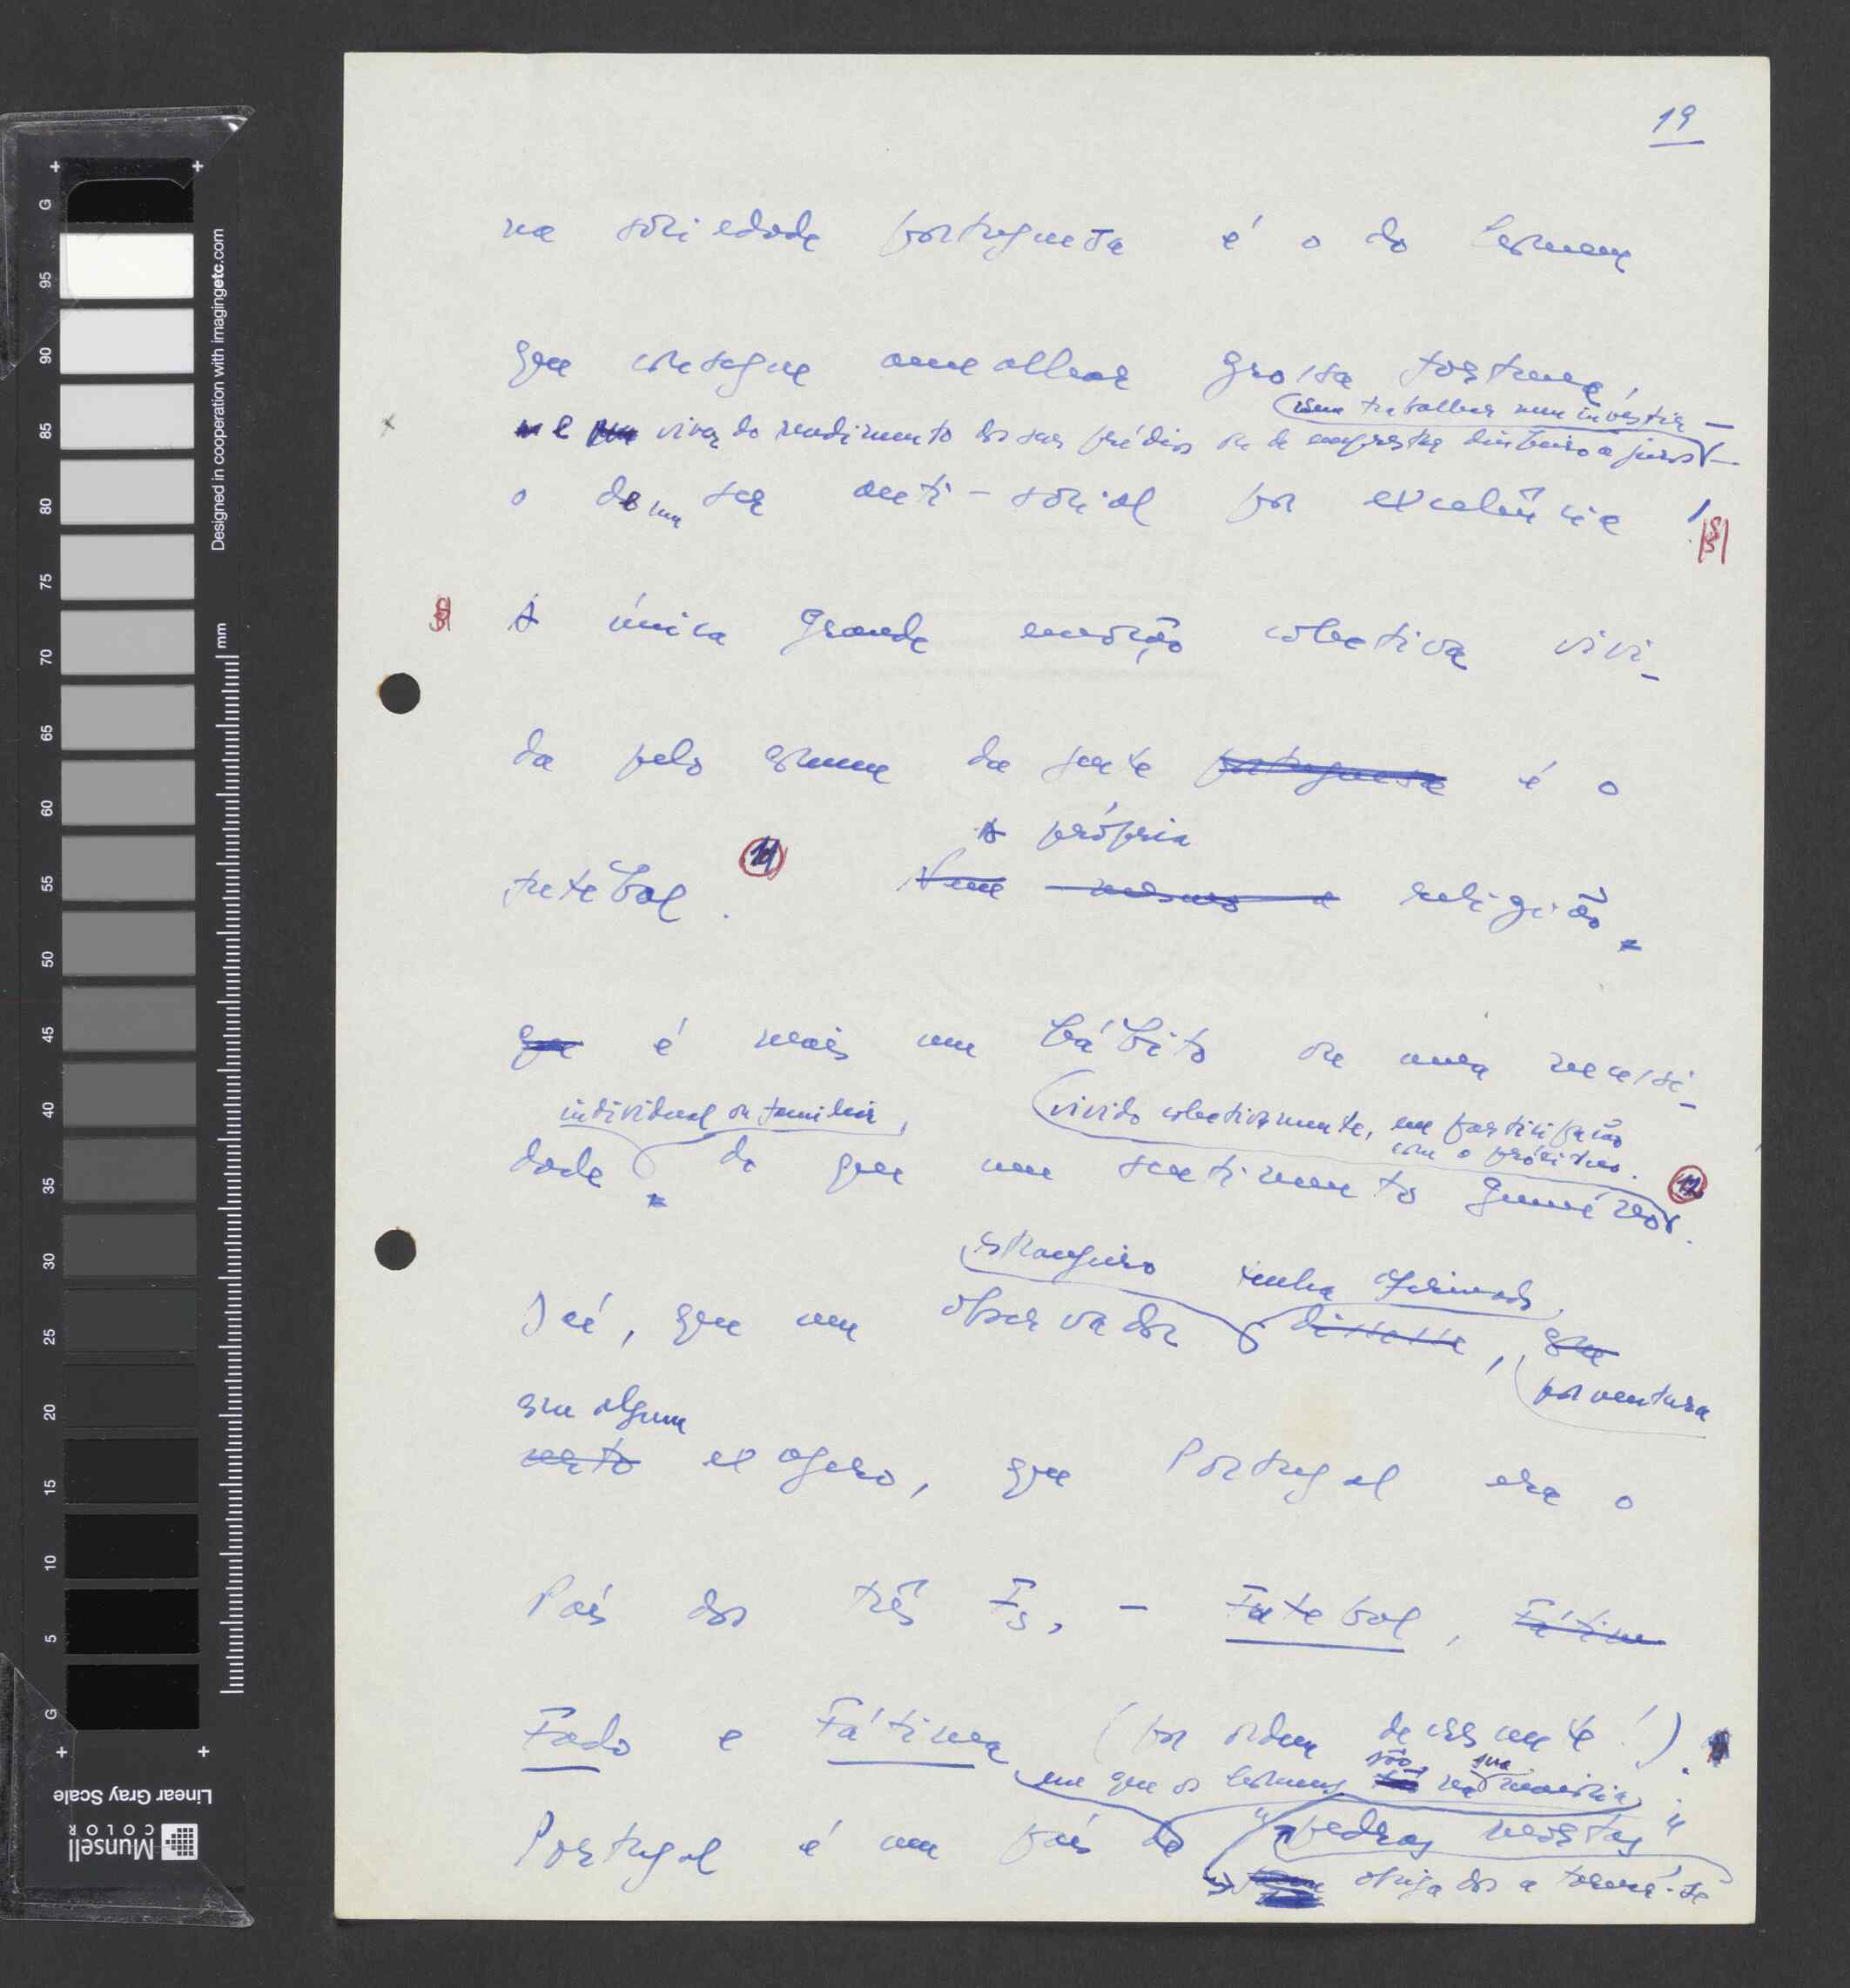 19
na sociedade portuguesa é o do homem
que consegue amealhar grossa fortuna,
sem trabalhar nem investir –
e viver do rendimento dos seus prédios ou de emprestar dinheiro a juros –
o de um ser anti-social por excelência !
§
§ A única grande emoção colectiva vivi-
da pelo comum da gente portuguesa é o
A própria
futebol. 11 Nem mesmo a religião
que é mais um hábito ou uma necessi-
individual ou familiar, vivido colectivamente, em participação
com o próximo.
dade do que um sentimento genuíno. 12
estrangeiro tenha afirmado,
Daí, que um observador dissesse, que
porventura
com algum
certo exagero, que Portugal era o
País dos três Fs, – Futebol, Fátima
Fado e Fátima (por ordem decrescente!).
em que os homens são, na sua maioria,
Portugal é um país de "pedras mortas"
obrigados a tornar-se
Designed in cooperation with imagingetc.com
mm
+ +
G
95
90
85
80
75
70
65
60
55
50
45
40
35
30
25
20
15
10
5
G
+ +
Linear Gray Scale
Munsell
COLOR